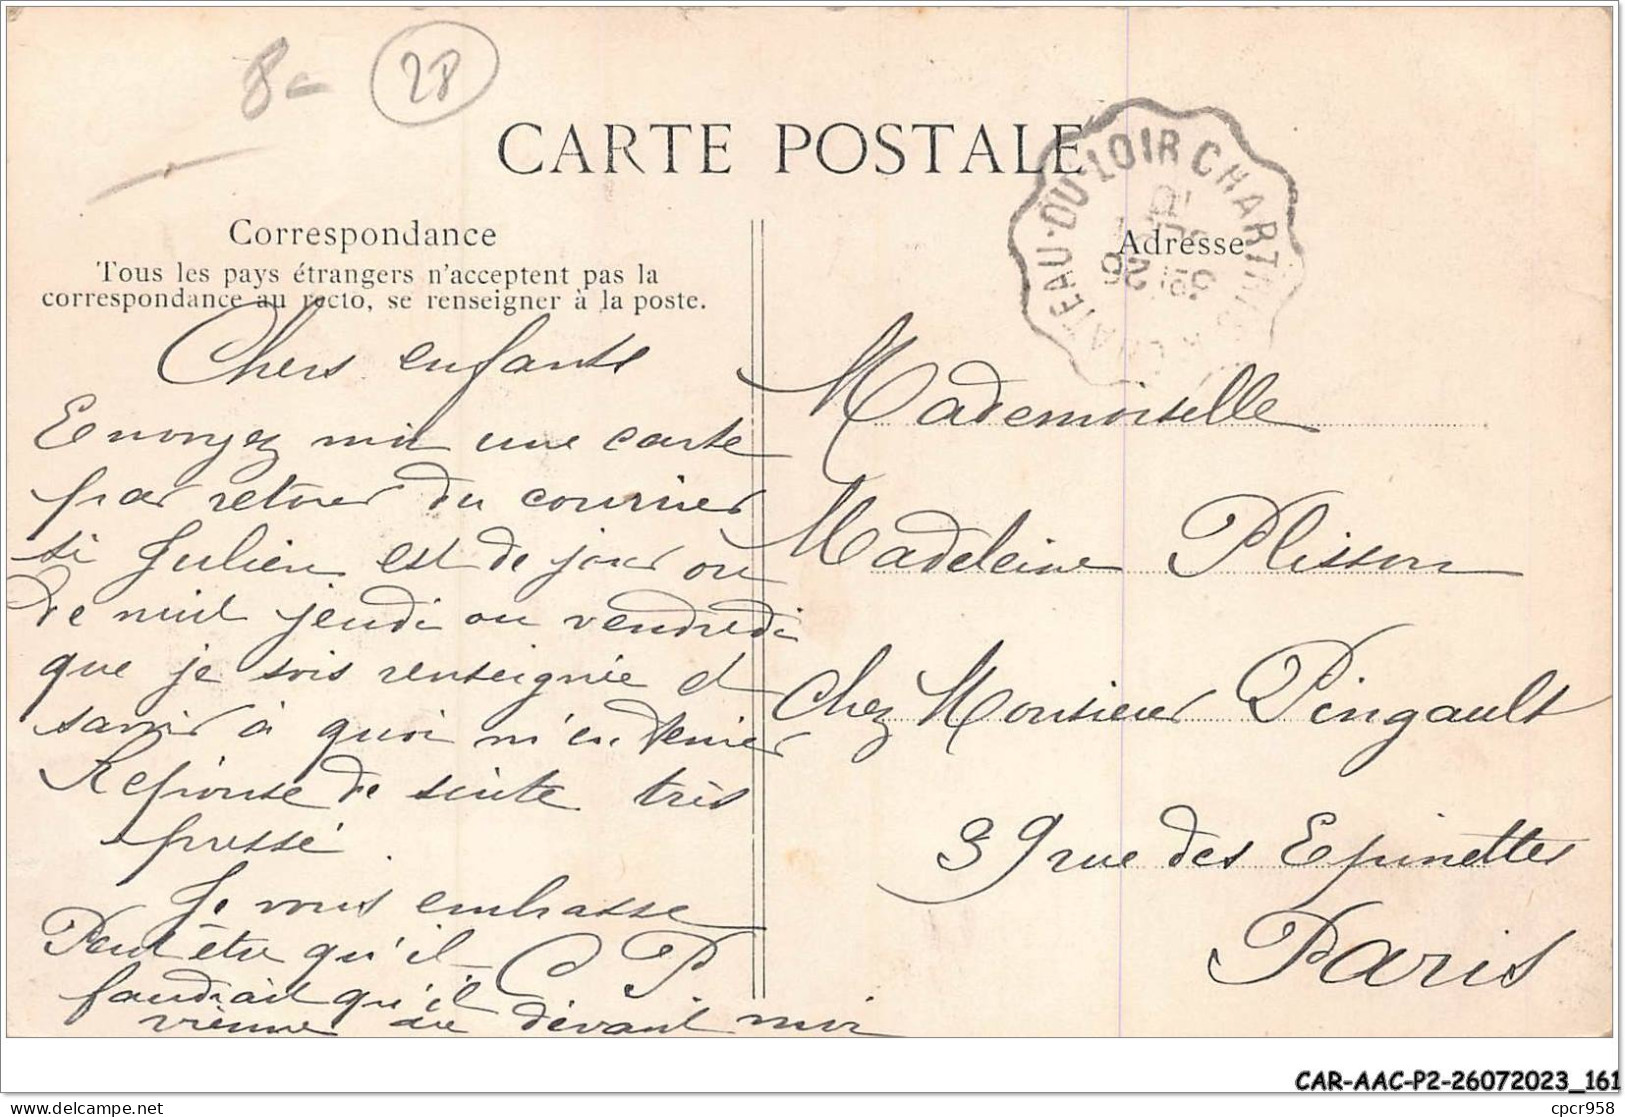 8-
28
CARTE POSTALE
CHATEAU-DU-LOIR CHARTRES
Correspondance
Tous les pays étrangers n'acceptent pas la
correspondance au recto, se renseigner à la poste.
Adresse
Chers enfants
Envoyez moi une carte
par retour du courrier
si Julien est de jour ou
de nuit jeudi ou vendredi
que je sois renseignée et
savoir à quoi m'en tenir
Reponse de suite très
pressé
Je vous embrasse
C P
Peut être qu'il
faudrait qu'il
vienne au devant moi
Mademoiselle
Madeleine Plisson
chez Monsieur Pingault
39 rue des Epinettes
Paris
CAR-AAC-P2-26072023_161
delcampe.net
cpcr958